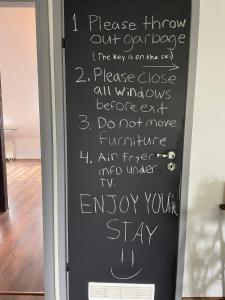 1 Please throw
out garbage
(The key is on the ski)
2. Please close
all windows
before exit
3. Do not move
Furniture
4. Air fryer
info under
TV.
ENJOY YOUR
STAY